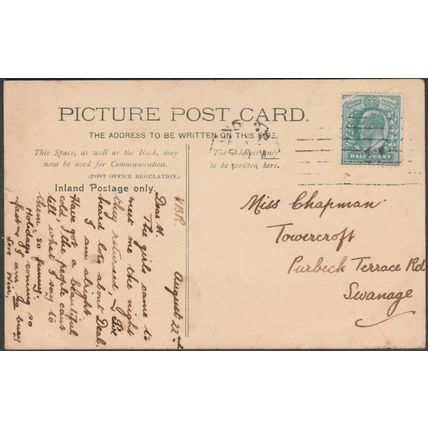 PICTURE POST CARD.
THE ADDRESS TO BE WRITTEN ON THIS SIDE.
This Space, as well as the Back, may
now be used for Communication.
(POST OFFICE REGULATION.)
Inland Postage only.
The Address only
to be written here.
HALF PENNY
Miss Chapman
Towercroft
Purbeck Terrace Rd
Swanage
August 22nd
Dear M.
The girls came to
meet me the night
they returned & I've
heard lots about Deal.
I am alright
Have got a beautiful
cold & the people can't
tell what I say to
them so funny.
Holidays coming so
fast & I am so busy
love Win.